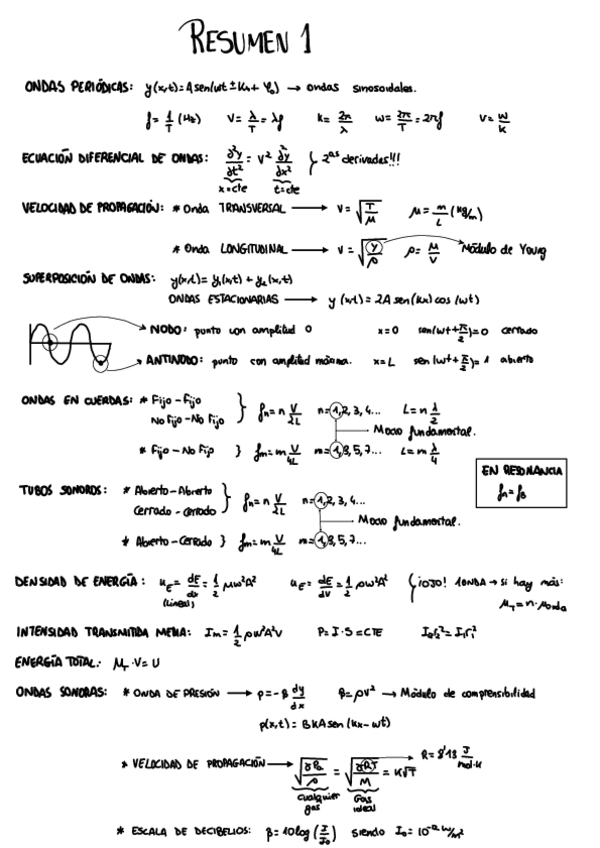 RESUMEN 1
ONDAS PERIÓDICAS: y(x,t)=A sen(wt ± kx + φ₀) → ondas sinosoidales.
f = 1/T (Hz) V = λ/T = λf k = 2π/λ w = 2π/T = 2πf V = w/k
ECUACIÓN DIFERENCIAL DE ONDAS: ∂²y/∂t² = V² ∂²y/∂x² } 2ªˢ derivadas!!!
x=cte t=cte
VELOCIDAD DE PROPAGACIÓN: * Onda TRANSVERSAL → V = √(T/μ) μ = m/L (kg/m)
* Onda LONGITUDINAL → V = √(Y/ρ) ρ = M/V Módulo de Young
SUPERPOSICIÓN DE ONDAS: y(x,t) = y₁(x,t) + y₂(x,t)
ONDAS ESTACIONARIAS → y(x,t) = 2A sen(kx) cos(wt)
NODO: punto con amplitud 0 x=0 sen(wt+π/2)=0 cerrado
ANTINODO: punto con amplitud máxima. x=L sen(wt+π/2)=1 abierto
ONDAS EN CUERDAS: * Fijo - Fijo
No Fijo - No Fijo } fn = n V/2L n=1,2,3,4... L = n λ/2
Modo fundamental.
* Fijo - No Fijo } fm = m V/4L m=1,3,5,7... L = m λ/4
EN RESONANCIA
fA = fB
TUBOS SONOROS: * Abierto - Abierto
Cerrado - Cerrado } fn = n V/2L n=1,2,3,4...
Modo fundamental.
* Abierto - Cerrado } fm = m V/4L m=1,3,5,7...
DENSIDAD DE ENERGÍA: uE = dE/dx = 1/2 μw²A² uE = dE/dV = 1/2 ρw²A² { ¡OJO! 1 ONDA → si hay más:
(Lineal) μT = n·μonda
INTENSIDAD TRANSMITIDA MEDIA: Im = 1/2 ρw²A²V P = I·S = CTE I₂r₂² = I₁r₁²
ENERGÍA TOTAL: μT·V = U
ONDAS SONORAS: * ONDA DE PRESIÓN → p = -B dy/dx B = ρV² → Módulo de comprensibilidad
p(x,t) = BKA sen(kx-wt)
* VELOCIDAD DE PROPAGACIÓN → √(γP₀/ρ) = √(γRT/M) = K√T R = 8'13 J/mol·K
cualquier gas Gas ideal
* ESCALA DE DECIBELIOS: β = 10 log(I/I₀) siendo I₀ = 10⁻¹² W/m²